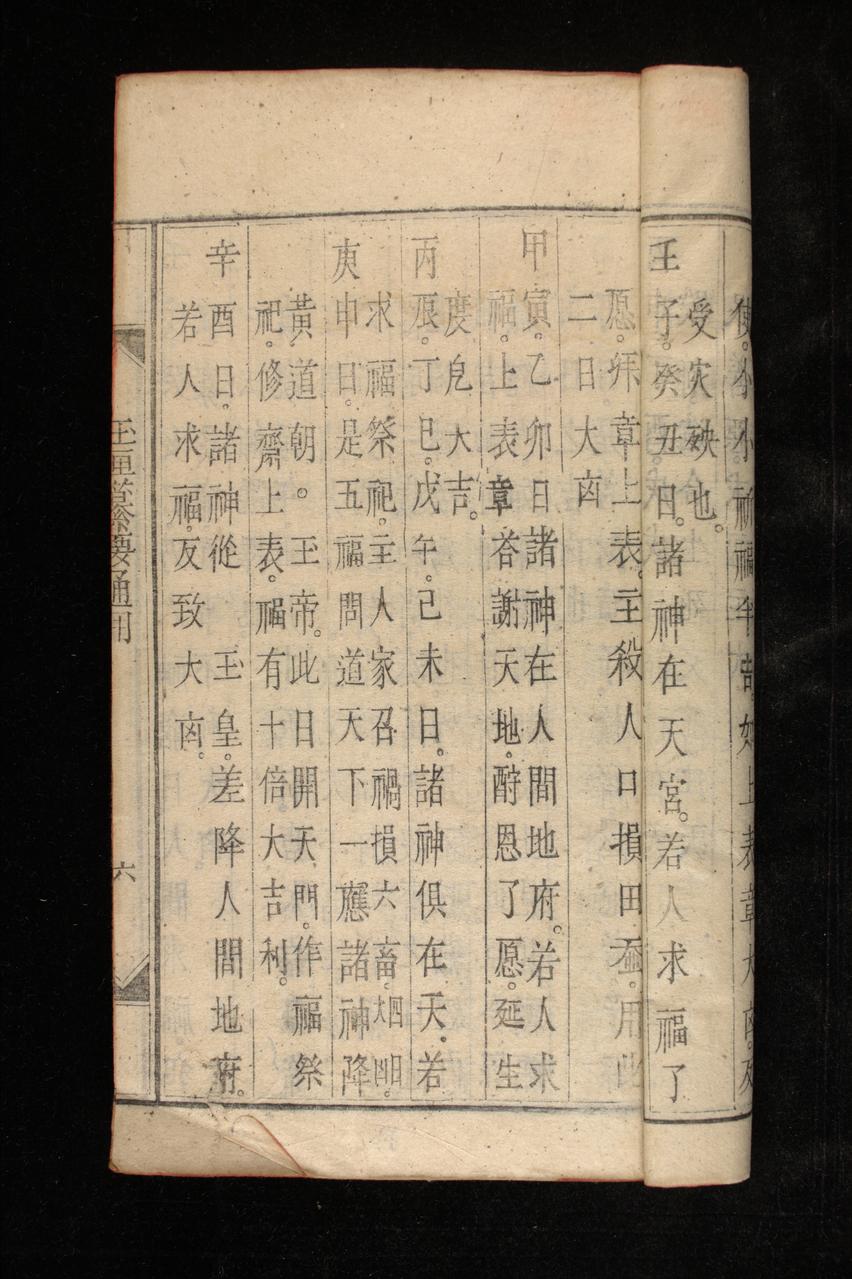 小祈福半吉如上表章大凶。反
受灾殃也。
壬子。癸丑日。諸神在天宮。若人求福了
愿。拜章上表。主殺人口損田蚕。用此
二日大凶
甲寅。乙卯日諸神在人間地府。若人求
福。上表章荅謝天地。酧恩了愿。延生
度厄大吉。
丙辰。丁巳。戊午。己未日。諸神俱在天。若
求福祭祀。主人家召禍損六畜。四日大凶。
庚申日。是五福問道天下一應諸神降
黃道朝。玉帝。此日開天門。作福祭
祀。修齋上表。福有十倍大吉利。
辛酉日。諸神從玉皇。差降人間地府。
若人求福反致大凶。
通用
六